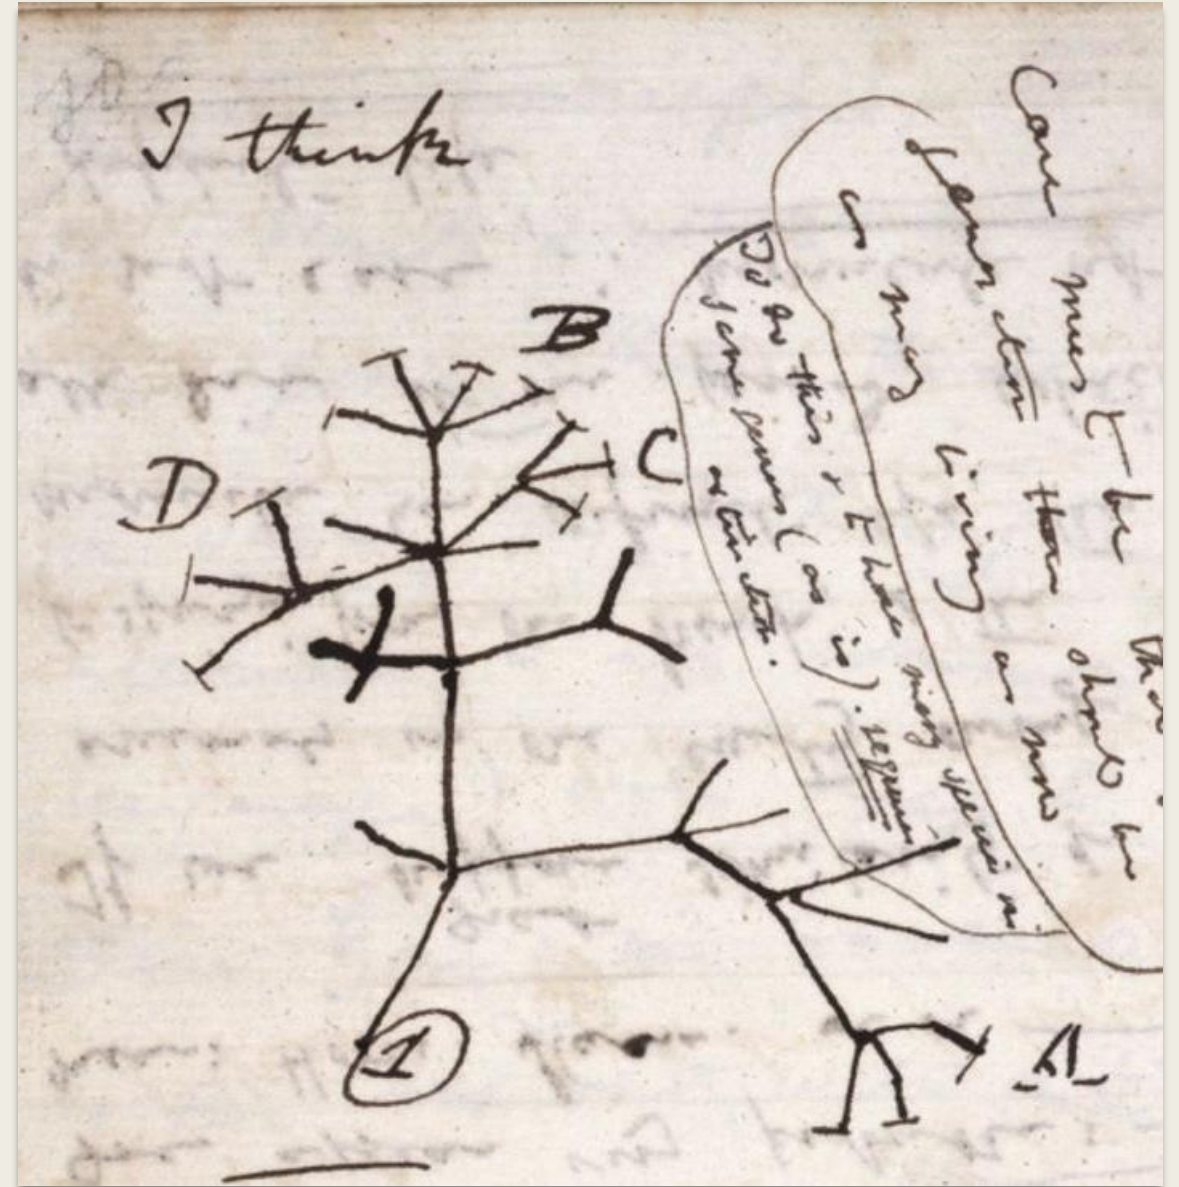 I think
Case must be that
generation then should be
as many living as now
To do this & to have many species in
same genus (as is). requires
extinction.
B
C
D
A
1